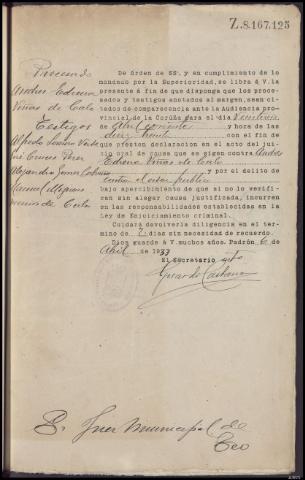 Z.8.167,125
Procesado
Andres Edreira
Viñas de Calo
Testigos
Alfredo
José
Alejandro
Manuel
de Calo
De Orden de SSª. y en cumplimiento de lo
mandado por la Superioridad, se libra á V. la
presente á fin de que disponga que los proce-
sados y testigos anotados al margen, sean ci-
tados de comparecencia ante la Audiencia pro-
vincial de la Coruña para el dia
Abril corriente y hora de las
diez con el fin de
que prestes declaracion en el acto del jui-
cio oral de causa que se siguen contra Andres
Edreira Viñas de Calo
y por el delito de
contra el orden publico
bajo apercibimiento de que si no lo verifi-
can sin alegar causa justificada, incurren
en las responsabilidades establecidas en la
Ley de Enjuiciamiento criminal.
Cuidará devolverla diligencia en el ter-
mino de 2 dias sin necesidad de recuerdo.
Dios guarde á V. muchos años. Padrón 6 de
Abril de 1933
El Secretario
Gerardo
Sr. Juez municipal de
Teo